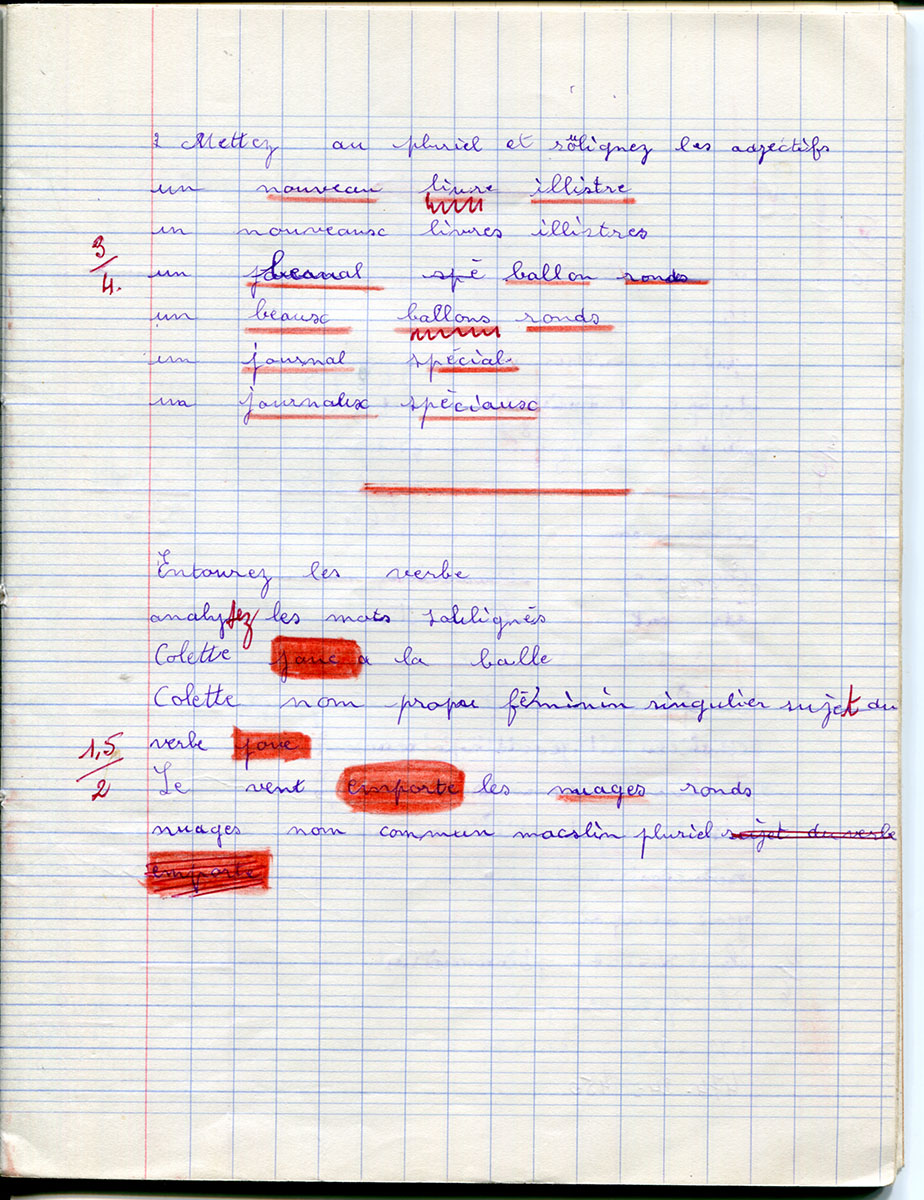 2 Mettez au pluriel et soulignez les adjectifs
un nouveau livre illistre
un nouveaux livres illistres
3/4.
un beau spé ballon ronds
un beaux ballons ronds
un journal spécial
un journaux spéciaux
Entourez les verbe
analysez les mots soulignés
Colette joue a la balle
Colette nom propre féminin singulier sujet du
1,5/2
verbe joue
Le vent emporte les nuages ronds
nuages nom commun macslin pluriel sujet du verbe
emporte